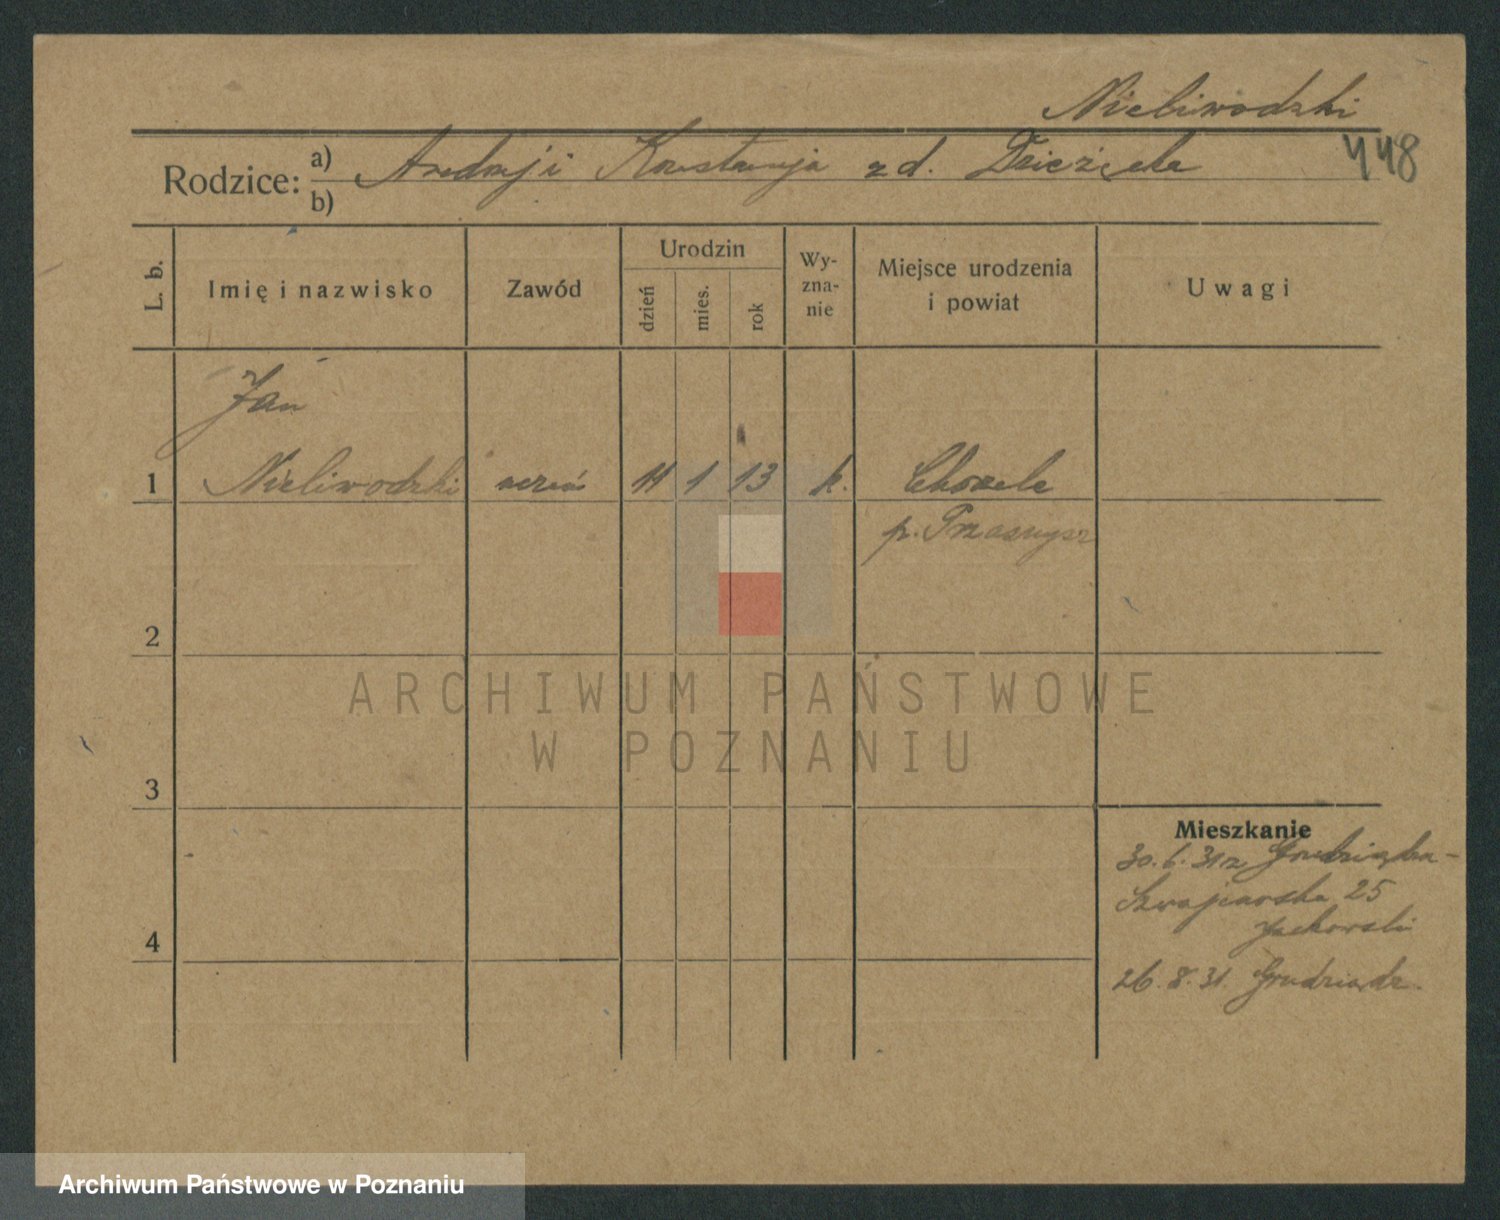 Nieliwodzki
448
Rodzice: a) Andrzej i Konstancja z d.
b)
L. b. Imię i nazwisko Zawód Urodzin dzień mies. rok Wy-zna-nie Miejsce urodzenia i powiat Uwagi
Jan
1 Nieliwodzki uczeń 11 1 13 k. Chorzele
p. Przasnysz
2
ARCHIWUM PAŃSTWOWE
W POZNANIU
3
Mieszkanie
30.6.31 z Grudziądza-
Szwajcarska 25
4
26.8.31. Grudziądz.
Archiwum Państwowe w Poznaniu